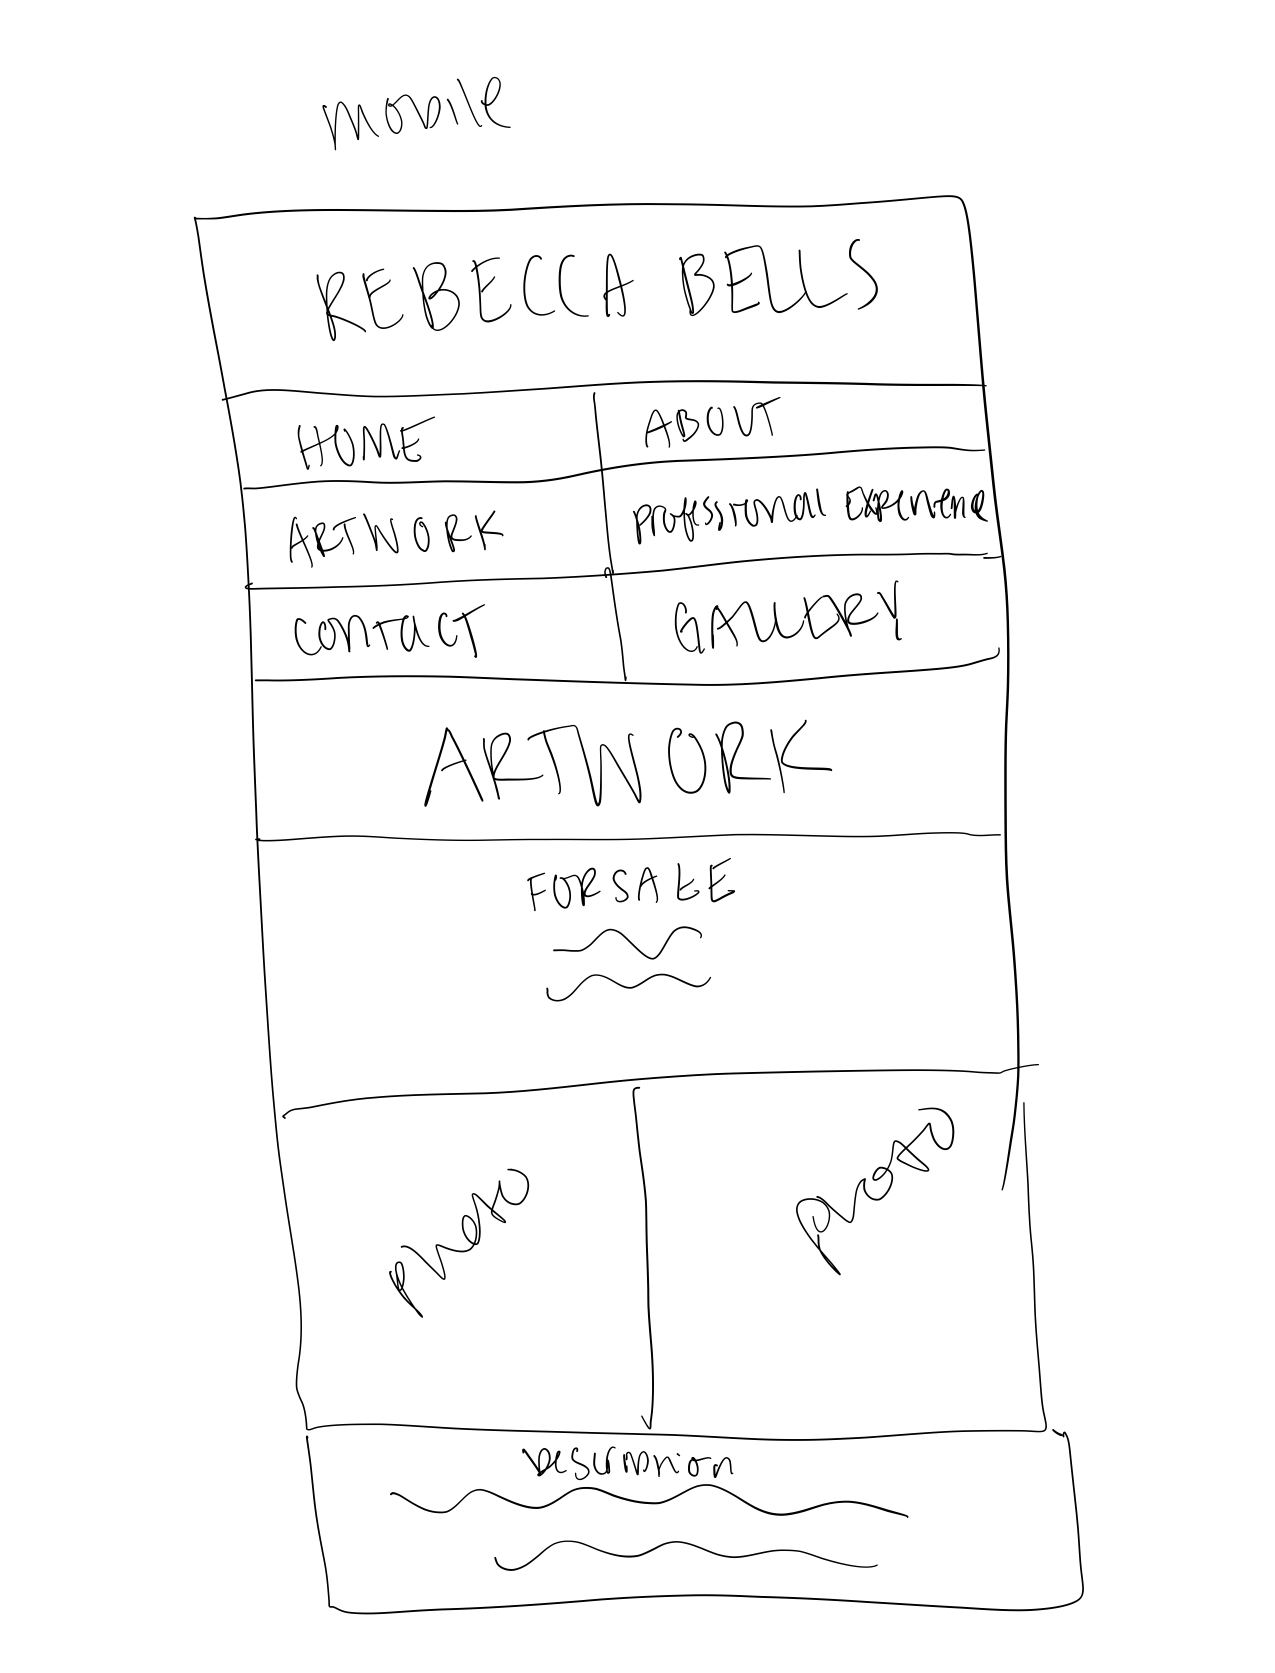 mobile
REBECCA BELLS
HOME
ABOUT
ARTWORK
Professional Experience
CONTACT
GALLERY
ARTWORK
FOR SALE
Photo
Photo
Description